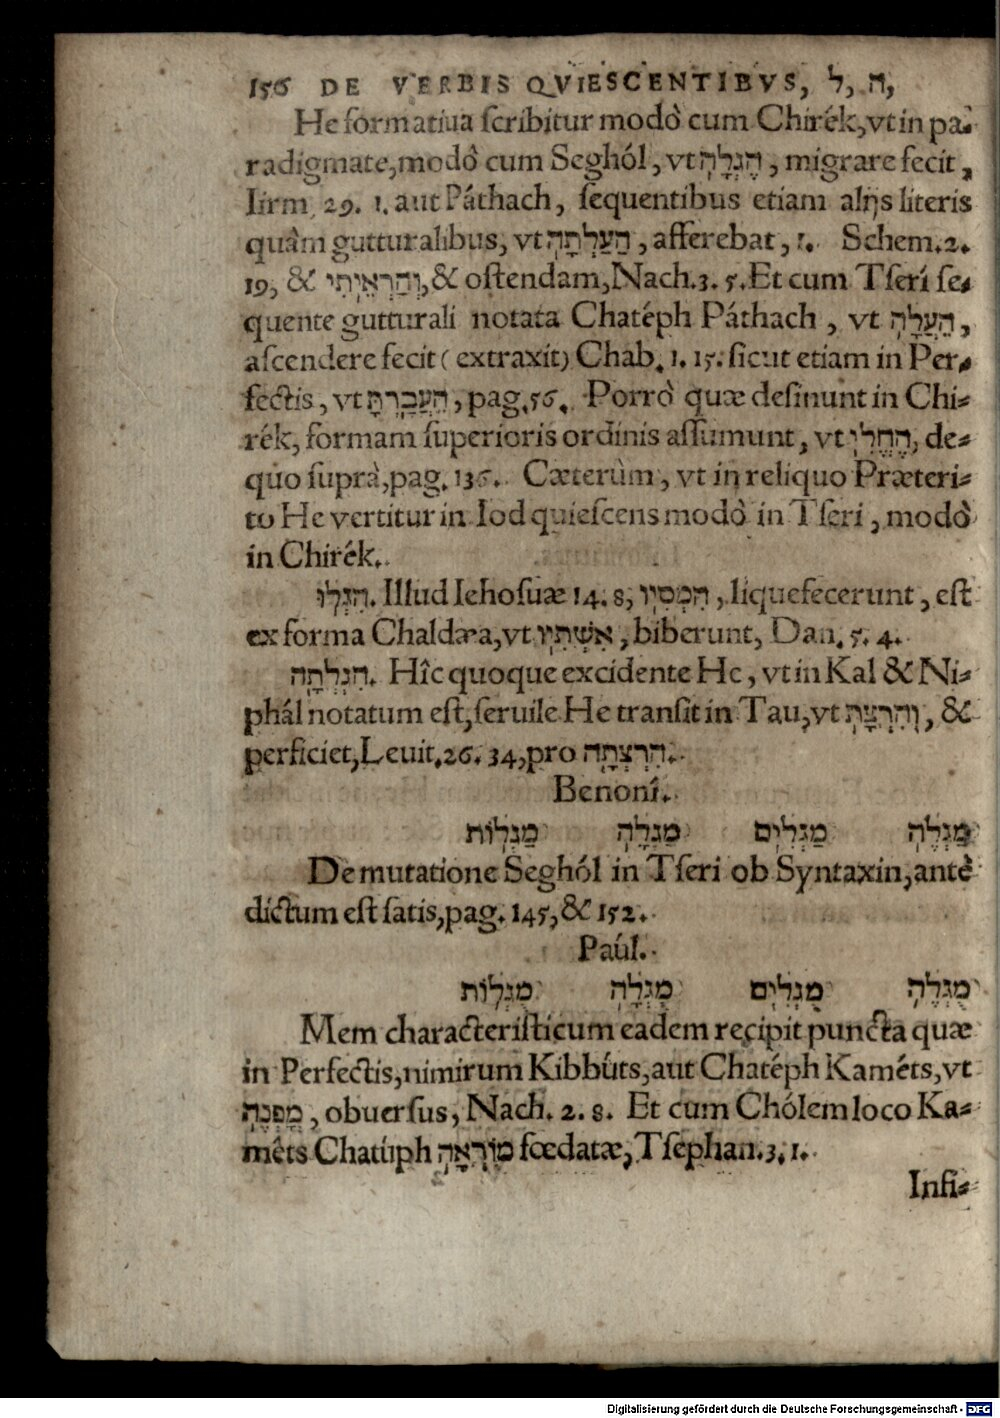 156 DE VERBIS QVIESCENTIBVS, ל, ה,
He formatiua scribitur modò cum Chirék, vt in pa-
radigmate, modò cum Seghól, vt הֶגְלָה, migrare fecit,
Iirm. 29. 1. aut Páthach, sequentibus etiam alijs literis
quàm gutturalibus, vt הַעַלְתָה, afferebat, 1. Schem. 2.
19, & וְהַרְאֵיתִי, & ostendam, Nach. 3. 5. Et cum Tserí se-
quente gutturali notata Chatéph Páthach, vt הֵעֲלָה,
ascendere fecit (extraxit) Chab. 1. 15. sicut etiam in Per-
fectis, vt הֵעֲבַרְתָּ, pag. 56. Porrò quæ desinunt in Chi-
rék, formam superioris ordinis assumunt, vt הֶחֱלִי, de
quo suprà, pag. 136. Cæterùm, vt in reliquo Præteri-
to He vertitur in Iod quiescens modò in Tseri, modò
in Chirék.
הִגְלוּ. Illud Iehosuæ 14. 8, הִמְסִיו, liquefecerunt, est
ex forma Chaldæa, vt אִשְׁתִּיו, biberunt, Dan. 5. 4.
הִגְלְתָה. Hîc quoque excidente He, vt in Kal & Ni-
phál notatum est, seruile He transit in Tau, vt וְהִרְצָת, &
perficiet, Leuit. 26. 34, pro הִרְצְתָה.
Benonî.
מַגְלֶה מַגְלִים מַגְלָה מַגְלוֹת
De mutatione Seghól in Tseri ob Syntaxin, antè
dictum est satis, pag. 145, & 152.
Paúl.
מֻגְלֶה מֻגְלִים מֻגְלָה מֻגְלוֹת
Mem characteristicum eadem recipit puncta quæ
in Perfectis, nimirum Kibbúts, aut Chatéph Kaméts, vt
מָפְנֶה, obuersus, Nach. 2. 8. Et cum Chólem loco Ka-
mêts Chatúph מוֹרְאָה fœdatæ, Tsephan. 3. 1.
Infi-
Digitalisierung gefördert durch die Deutsche Forschungsgemeinschaft - DFG